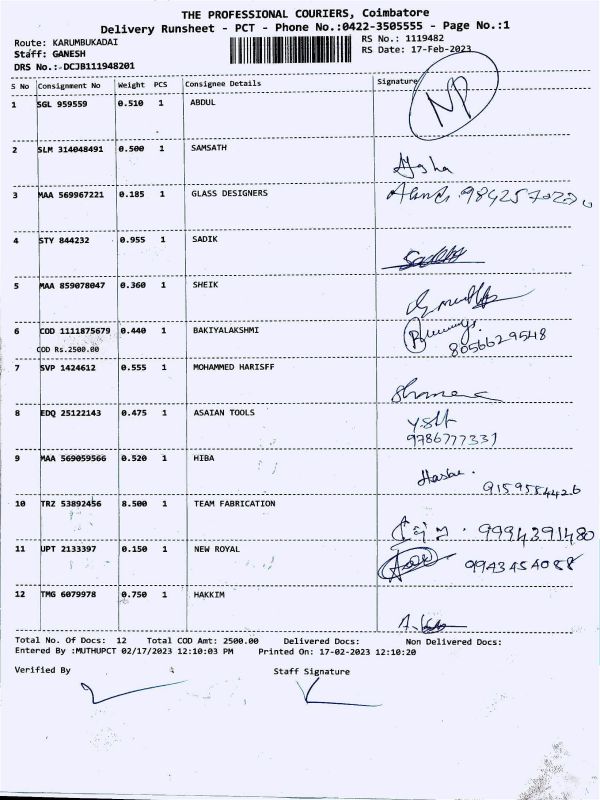 THE PROFESSIONAL COURIERS, Coimbatore
Delivery Runsheet - PCT - Phone No.:0422-3505555 - Page No.:1
Route: KARUMBUKADAI RS No.: 1119482
Staff: GANESH RS Date: 17-Feb-2023
DRS No.:-DCJB111948201
S No Consignment No Weight PCS Consignee Details Signature
1 SGL 959559 0.510 1 ABDUL NP
2 SLM 314048491 0.500 1 SAMSATH
3 MAA 569967221 0.185 1 GLASS DESIGNERS
4 STY 844232 0.955 1 SADIK
5 MAA 859078047 0.360 1 SHEIK
6 COD 1111875679 0.440 1 BAKIYALAKSHMI 8056629548
COD Rs.2500.00
7 SVP 1424612 0.555 1 MOHAMMED HARISFF
8 EDQ 25122143 0.475 1 ASAIAN TOOLS
9786777331
9 MAA 569059566 0.520 1 HIBA
9159584426
10 TRZ 53892456 8.500 1 TEAM FABRICATION
9994391480
11 UPT 2133397 0.150 1 NEW ROYAL 9943454088
12 TMG 6079978 0.750 1 HAKKIM
Total No. Of Docs: 12 Total COD Amt: 2500.00 Delivered Docs: Non Delivered Docs:
Entered By :MUTHUPCT 02/17/2023 12:10:03 PM Printed On: 17-02-2023 12:10:20
Verified By Staff Signature